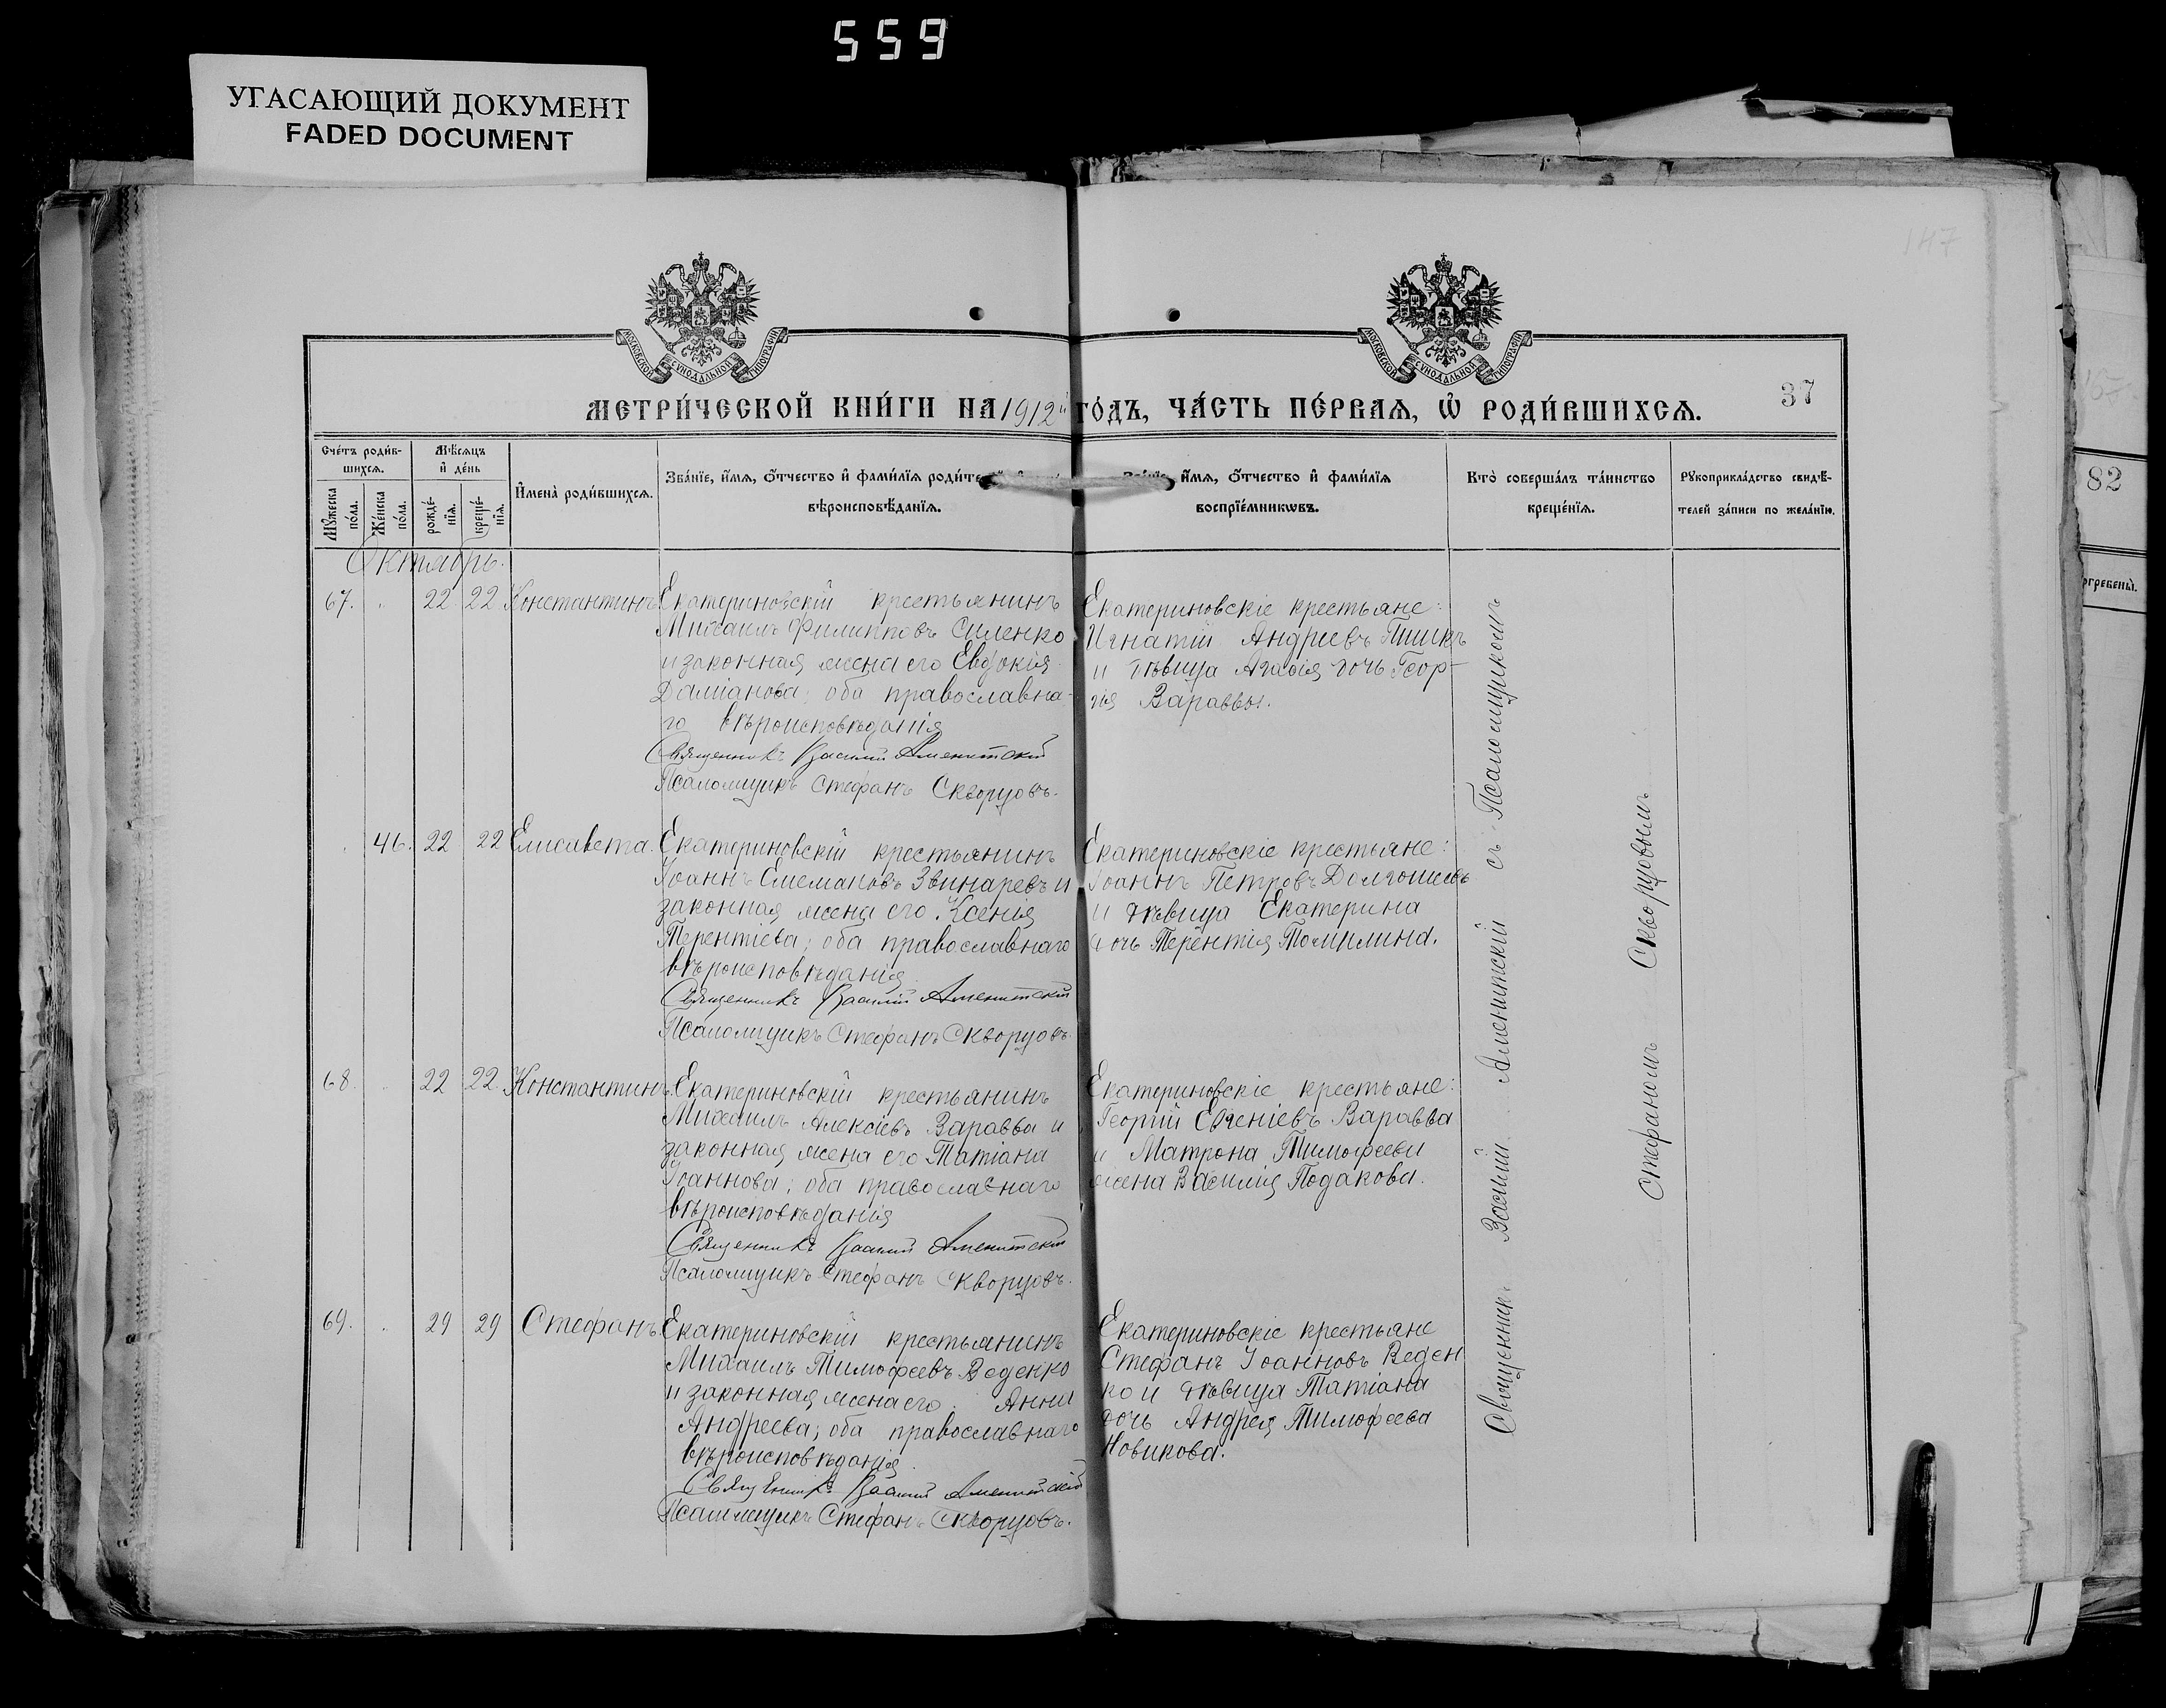 559
УГАСАЮЩИЙ ДОКУМЕНТ
FADED DOCUMENT
147
МОСКОВСКОЙ СѴНОДАЛЬНОЙ ТИПОГРАФІИ
МОСКОВСКОЙ СѴНОДАЛЬНОЙ ТИПОГРАФІИ
37
МЕТРИ́ЧЕСКОЙ КНИ́ГИ НА 1912й ГО́ДЪ, ЧА́СТЬ ПЕ́РВАѦ, Ѡ҆ РОДИ́ВШИХСѦ.
Сче́тъ роди́в-
шихсѧ.
Мꙋ́жеска
по́ла.
Же́нска
по́ла.
Мѣ́сѧцъ
и҆ де́нь
рожде́-
нїѧ.
креще́-
нїѧ.
И҆мена̀ роди́вшихсѧ.
Зва́нїе, и҆́мѧ, ѻ҆́тчество и҆ фами́лїѧ
вѣроисповѣ́данїѧ.
и҆́мѧ, ѻ҆́тчество и҆ фами́лїѧ
воспрїе́мникѡвъ.
Кто̀ соверша́лъ та́инство
креще́нїѧ.
Рꙋкоприкла́дство свидѣ́-
телей за́писи по жела́нїю.
82
Октябрь.
67. 22 22 Константинъ
Екатериновскій крестьянинъ
Михаилъ Филипповъ Силенко
и законная жена его Евдокія
Даміанова; оба православна-
го вѣроисповѣданія
Священникъ Василій Аменитскій
Псаломщикъ Стефанъ Скворцовъ.
Екатериновскіе крестьяне:
Игнатій Андреевъ
и дѣвица дочь Геор-
гія Вараввы.
46. 22 22 Елисавета.
Екатериновскій крестьянинъ
Іоаннъ Звинаревъ и
законная жена его Ксенія
Терентіева; оба православнаго
вѣроисповѣданія
Священникъ Василій Аменитскій
Псаломщикъ Стефанъ Скворцовъ.
Екатериновскіе крестьяне:
Іоаннъ Петровъ
и дѣвица Екатерина
дочь Терентія Томилина.
68. 22 22. Константинъ
Екатериновскій крестьянинъ
Михаилъ Алексіевъ Варавва и
законная жена его Татіана
Іоаннова; оба православнаго
вѣроисповѣданія
Священникъ Василій Аменитскій
Псаломщикъ Стефанъ Скворцовъ.
Екатериновскіе крестьяне:
Георгій Евгеніевъ Варавва
и Матрона Тимофеева
жена Василія Подакова.
69. 29 29 Стефанъ
Екатериновскій крестьянинъ
Михаилъ Тимофеевъ Веденко
и законная жена его Анна
Андреева; оба православнаго
вѣроисповѣданія
Священникъ Василій Аменитскій
Псаломщикъ Стефанъ Скворцовъ.
Екатериновскіе крестьяне
Стефанъ Іоанновъ Веден
ко и дѣвица Татіана
дочь Андрея Тимофеева
Новикова.
Священникъ Василій Аменитскій съ Псаломщикомъ
Стефаномъ Скворцовымъ